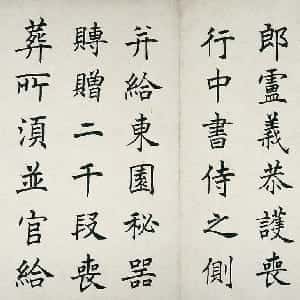 郎盧義恭護喪
行中書侍之側
并給東園秘器
賻贈二千段喪
葬所須並官給